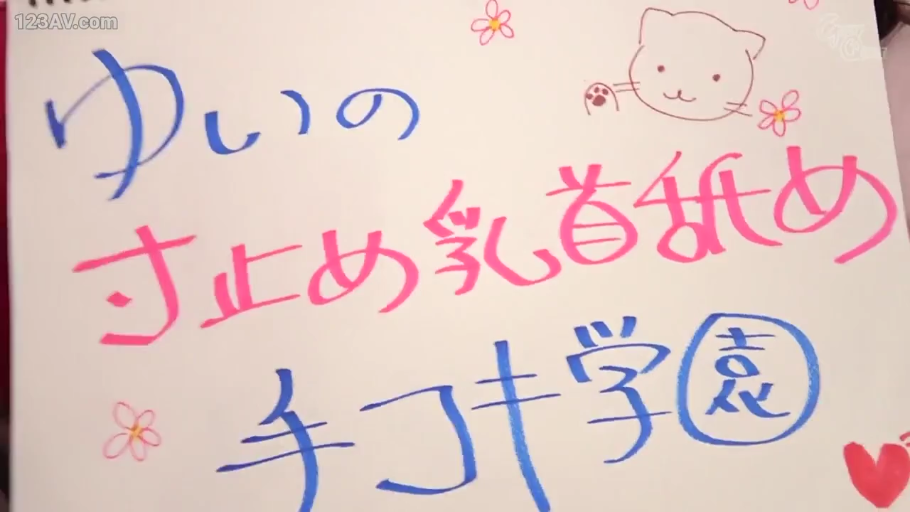 123AV.com
ゆいの
寸止め乳首舐め
手コキ学園